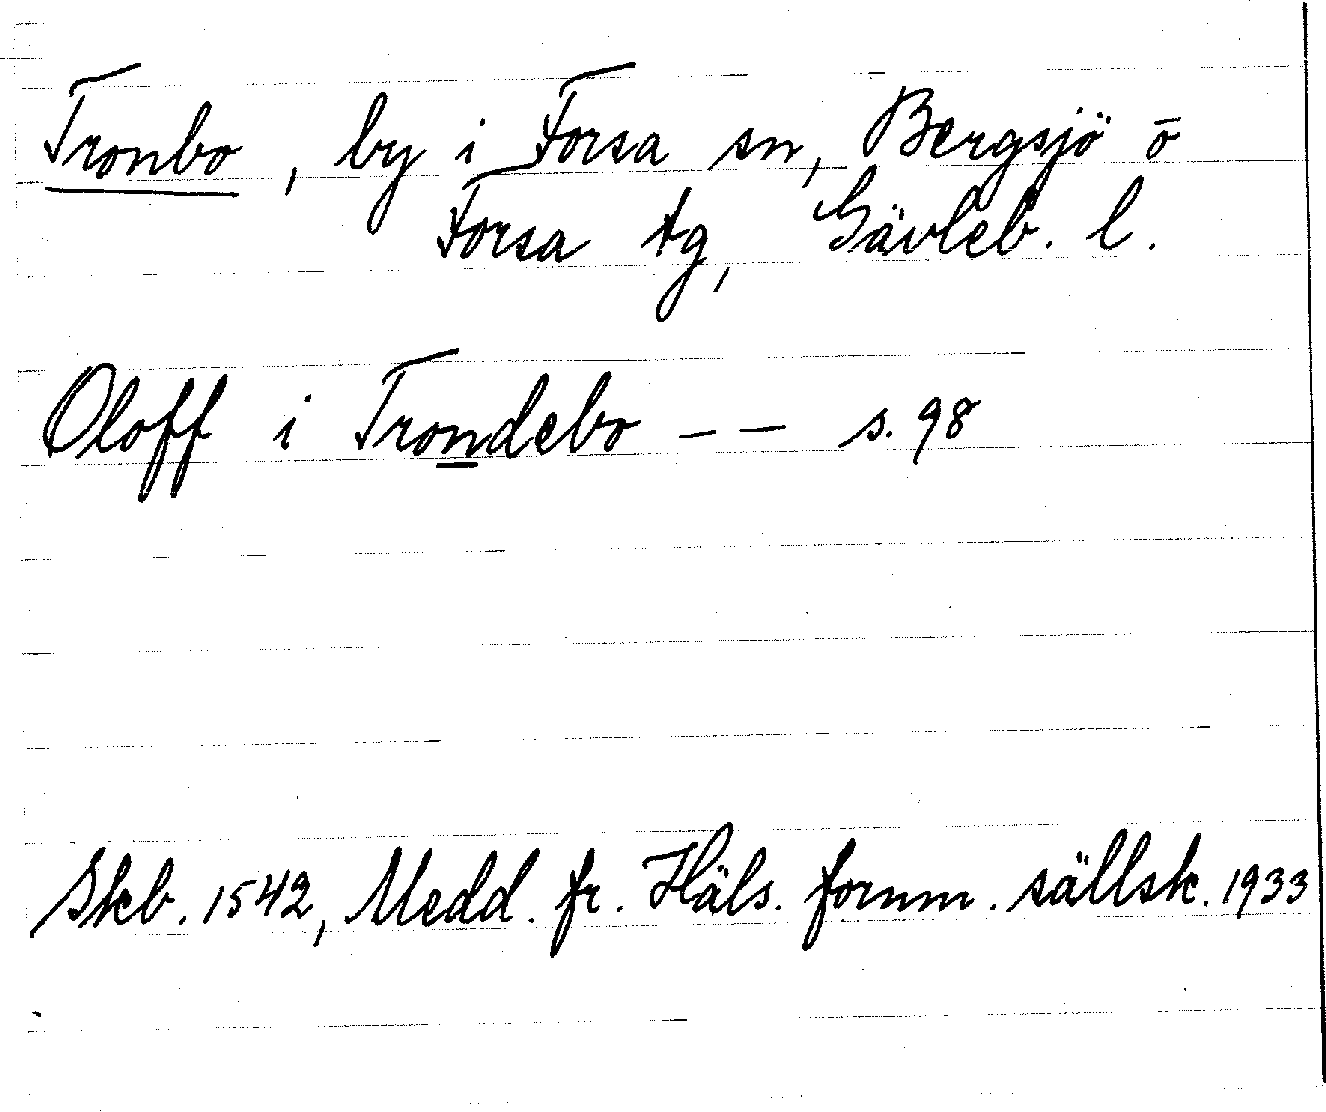 Tronbo, by i Forsa sn, Bergsjö o
Forsa tg, Gävleb. l.
Oloff i Trondebo -- s. 98
Skb. 1542, Medd. fr. Häls. fornm. sällsk. 1933